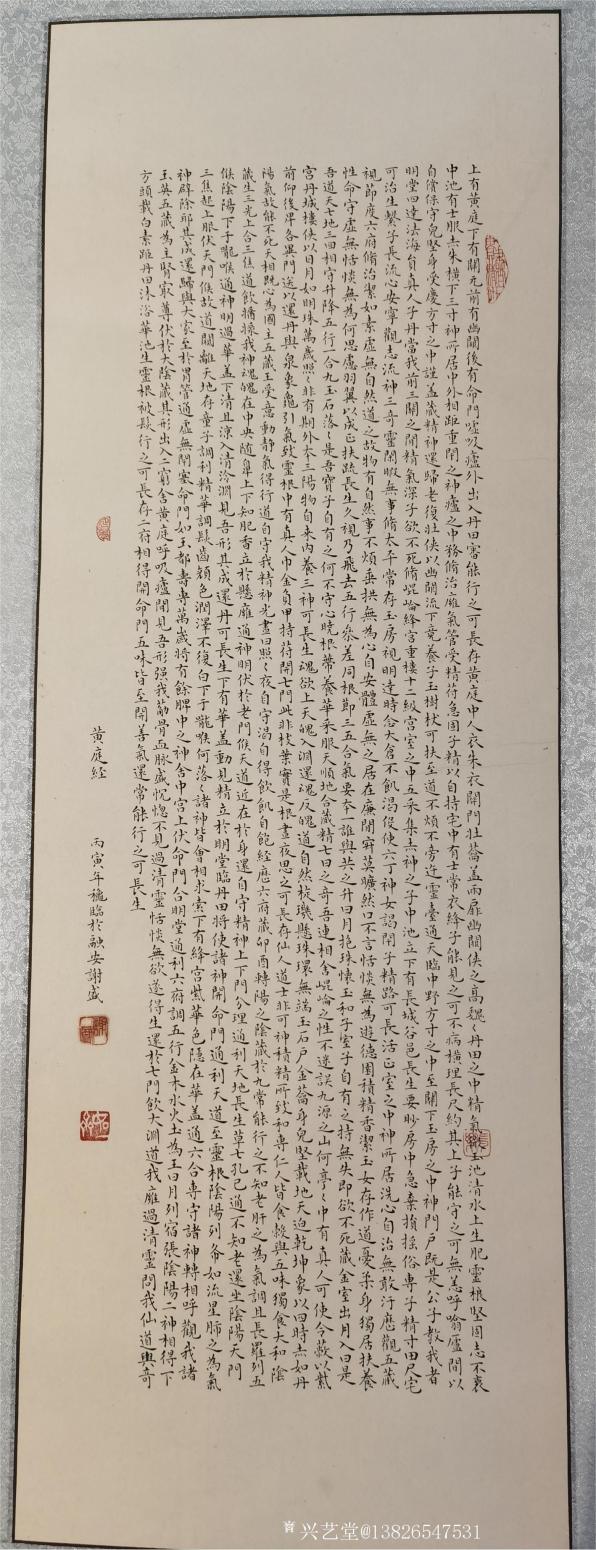 上有黃庭下有關元前有幽闕後有命門噓吸廬外出入丹田審能行之可長存黃庭中人衣朱衣關門壯籥蓋兩扉幽闕俠之高魏〻丹田之中精氣微玉池清水上生肥靈根堅固志不衰
中池有士服赤朱橫下三寸神所居中外相距重閉之神廬之中務脩治癰氣管受精符急固子精以自持宅中有士常衣絳子能見之可不病橫理長尺約其上子能守之可無恙呼噏廬間以
自償保守皃堅身受慶方寸之中謹蓋藏精神還歸老復壯俠以幽闕流下竟養子玉樹杖可扶至道不煩不旁迕靈臺通天臨中野方寸之中至關下玉房之中神門戶既是公子教我者
明堂四達法海負真人子丹當我前三關之間精氣深子欲不死脩崐崙絳宮重樓十二級宮室之中五采集赤神之子中池立下有長城谷邑長生要眇房中急棄捐搖俗專子精寸田尺宅
可治生繫子長流心安寧觀志流神三奇靈閑暇無事脩太平常存玉房視明達時念大倉不飢渴役使六丁神女謁閉子精路可長活正室之中神所居洗心自治無敢汙歷觀五藏
視節度六府脩治潔如素虛無自然道之故物有自然事不煩垂拱無為心自安體虛無之居在廉間寂莫曠然口不言恬惔無為遊德園積精香潔玉女存作道憂柔身獨居扶養
性命守虛無恬惔無為何思慮羽翼以成正扶疏長生久視乃飛去五行參差同根節三五合氣要本一誰與共之升日月抱珠懷玉和子室子自有之持無失即欲不死藏金室出月入日是
吾道天七地三回相守升降五行一合九玉石落〻是吾寶子自有之何不守心曉根蔕養華采服天順地合藏精七日之奇吾連相舍崐崙之性不迷誤九源之山何亭〻中有真人可使令蔽以紫
宮丹城樓俠以日月如明珠萬歲照〻非有期外本三陽物自來內養三神可長生魂欲上天魄入淵還魂反魄道自然旋璣懸珠環無端玉石戶金籥身皃堅載地天迫乾坤象以四時赤如丹
前仰後卑各異門送以還丹與泉象龜引氣致靈根中有真人巾金負甲持符開七門此非枝葉實是根晝夜思之可長存仙人道士非可神積精所致和專仁人皆食穀與五味獨食大和陰
陽氣故能不死天相既心為國主五藏王受意動靜氣得行道自守我精神光晝日照〻夜自守渴自得飲飢自飽經歷六府藏卯酉轉陽之陰藏於九常能行之不知老肝之為氣調且長羅列五
藏生三光上合三焦道飲醬漿我神魂魄在中央隨鼻上下知肥香立於懸癰通神明伏於老門候天道近在於身還自守精神上下門分理通利天地長生草七孔已通不知老還坐陰陽天門
候陰陽下于嚨喉通神明過華蓋下清且涼入清泠淵見吾形其成還丹可長生下有華蓋動見精立於明堂臨丹田將使諸神開命門通利天道至靈根陰陽列布如流星肺之為氣
三焦起上服伏天門候故道闚離天地存童子調利精華調髮齒顏色潤澤不復白下于嚨喉何落〻諸神皆會相求索下有絳宮紫華色隱在華蓋通六合專守諸神轉相呼觀我諸
神辟除邪其成還歸與大家至於胃管通虛無閉塞命門如玉都壽專萬歲將有餘脾中之神舍中宮上伏命門合明堂通利六府調五行金木水火土為王日月列宿張陰陽二神相得下
玉英五藏為主腎最尊伏於大陰藏其形出入二竅舍黃庭呼吸廬間見吾形强我筋骨血脉盛恍惚不見過清靈恬惔無欲遂得生還於七門飲大淵道我癰過清靈問我仙道與奇
方頭載白素距丹田沐浴華池生靈根被髮行之可長存二府相得開命門五味皆至開善氣還常能行之可長生
黃庭经
丙寅年穐臨於融安謝盛
兴艺堂@13826547531